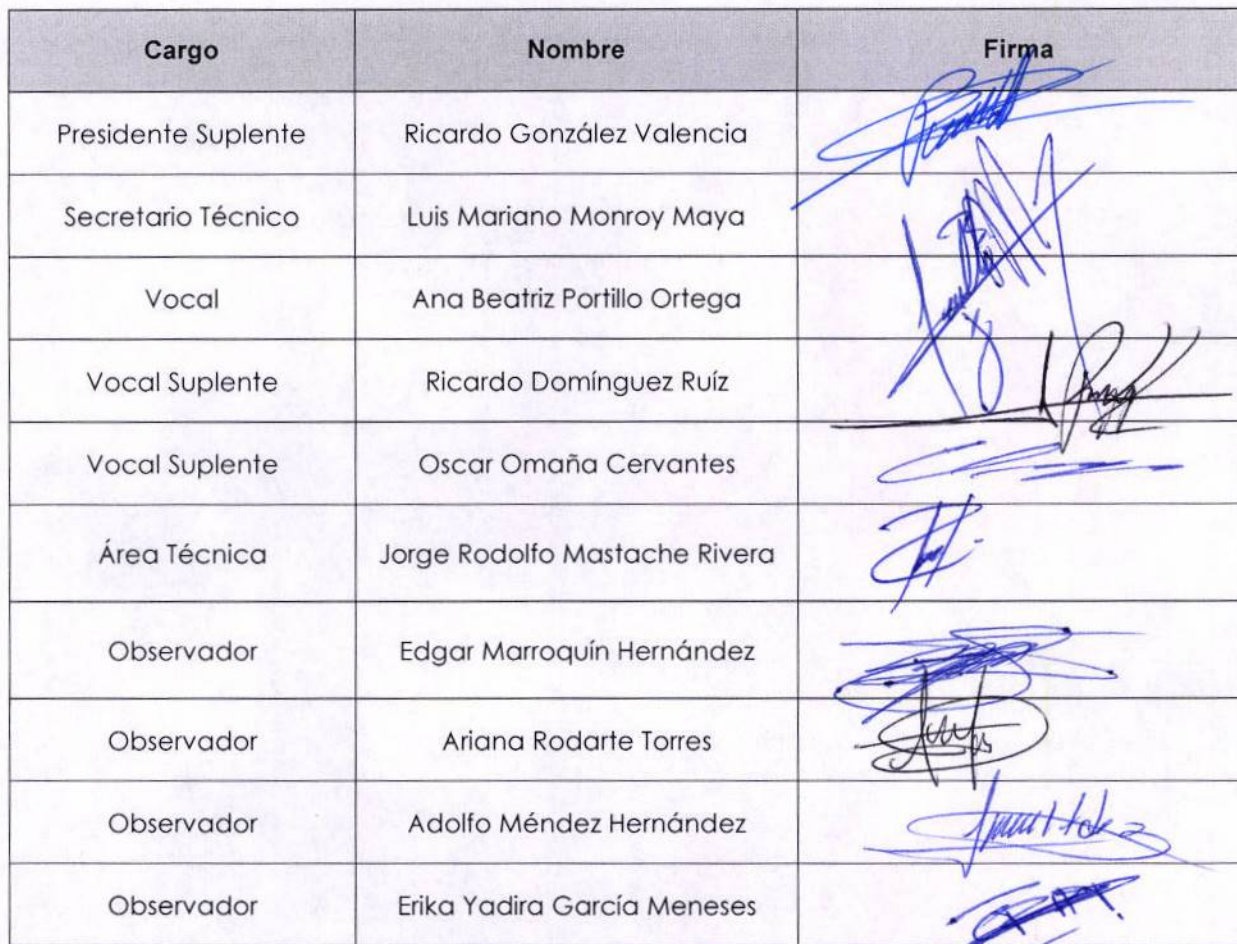 Cargo Nombre Firma
Presidente Suplente Ricardo González Valencia
Secretario Técnico Luis Mariano Monroy Maya
Vocal Ana Beatriz Portillo Ortega
Vocal Suplente Ricardo Domínguez Ruíz
Vocal Suplente Oscar Omaña Cervantes
Área Técnica Jorge Rodolfo Mastache Rivera
Observador Edgar Marroquín Hernández
Observador Ariana Rodarte Torres
Observador Adolfo Méndez Hernández
Observador Erika Yadira García Meneses